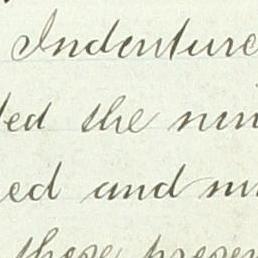 Indenture
ted the nin
ed and ni
these presen